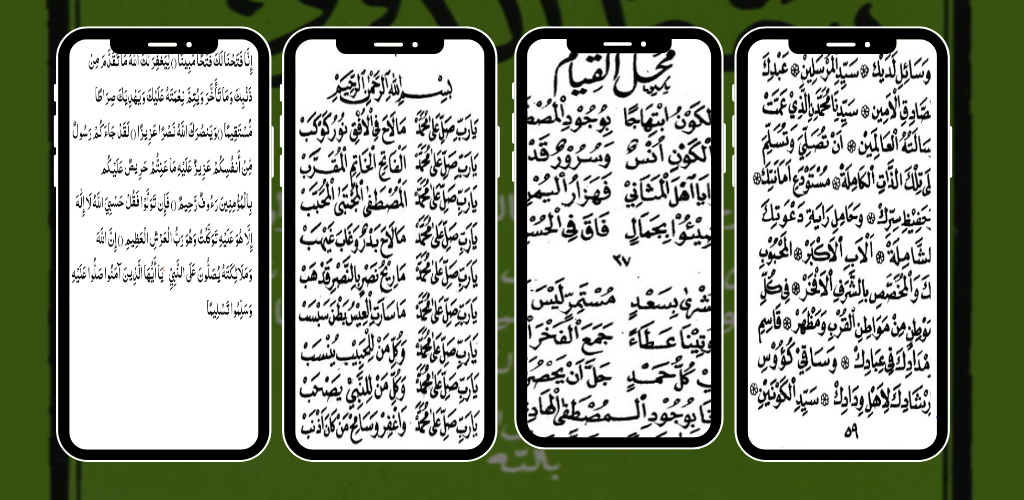 إِنَّا فَتَحْنَا لَكَ فَتْحًا مُبِينًا () لِيَغْفِرَ لَكَ اللهُ مَا تَقَدَّمَ مِنْ
ذَنْبِكَ وَمَا تَأَخَّرَ وَيُتِمَّ نِعْمَتَهُ عَلَيْكَ وَيَهْدِيَكَ صِرَاطًا
مُسْتَقِيمًا () وَيَنْصُرَكَ اللهُ نَصْرًا عَزِيزًا () لَقَدْ جَاءَكُمْ رَسُولٌ
مِنْ أَنْفُسِكُمْ عَزِيزٌ عَلَيْهِ مَا عَنِتُّمْ حَرِيصٌ عَلَيْكُمْ
بِالْمُؤْمِنِينَ رَءُوفٌ رَحِيمٌ () فَإِنْ تَوَلَّوْا فَقُلْ حَسْبِيَ اللهُ لَا إِلٰهَ
إِلَّا هُوَ عَلَيْهِ تَوَكَّلْتُ وَهُوَ رَبُّ الْعَرْشِ الْعَظِيمِ () إِنَّ اللهَ
وَمَلَائِكَتَهُ يُصَلُّونَ عَلَى النَّبِيِّ يَا أَيُّهَا الَّذِينَ آمَنُوا صَلُّوا عَلَيْهِ
وَسَلِّمُوا تَسْلِيمًا
بِسْمِ اللهِ الرَّحْمٰنِ الرَّحِيمِ
يَارَبِّ صَلِّ عَلَى مُحَمَّدْ مَالَاحَ فِي الْأُفْقِ نُورُ كَوْكَبْ
يَارَبِّ صَلِّ عَلَى مُحَمَّدْ الْفَاتِحِ الْخَاتِمِ الْمُقَرَّبْ
يَارَبِّ صَلِّ عَلَى مُحَمَّدْ الْمُصْطَفَى الْمُجْتَبَى الْمُحَبَّبْ
يَارَبِّ صَلِّ عَلَى مُحَمَّدْ مَالَاحَ بَدْرٌ وَغَابَ غَيْهَبْ
يَارَبِّ صَلِّ عَلَى مُحَمَّدْ مَارِيحُ نَصْرٍ بِالنَّصْرِ قَدْهَبْ
يَارَبِّ صَلِّ عَلَى مُحَمَّدْ مَاسَارَتِ الْعِيسُ بَطْنَ سَبْسَبْ
يَارَبِّ صَلِّ عَلَى مُحَمَّدْ وَكُلِّ مَنْ لِلْحَبِيبِ يُنْسَبْ
يَارَبِّ صَلِّ عَلَى مُحَمَّدْ وَكُلِّ مَنْ لِلنَّبِيِّ يَصْحَبْ
يَارَبِّ صَلِّ عَلَى مُحَمَّدْ وَاغْفِرْ وَسَامِحْ مَنْ كَانَ أَذْنَبْ
مَحَلُّ الْقِيَامِ
الْكَوْنُ ابْتِهَاجًا بِوُجُودِ الْمُصْطَ
الْكَوْنِ أُنْسٌ وَسُرُورٌ قَدْ
يَا أَهْلَ الْمَثَانِيْ فَهَزَارُ الْيُمْنِ
بِجَمَالٍ فَاقَ فِي الْحُسْ
٣٧
بِسَعْدٍ مُسْتَمِرٍّ لَيْسَ
عَطَاءً جَمَعَ الْفَخْرَ
كُلُّ حَمْدٍ جَلَّ أَنْ يَحْصُرَ
بِوُجُودِ الْمُصْطَفَى الْهَادِ
وَسَائِلِ لَدَيْكَ ۞ سَيِّدِ الْمُرْسَلِيْنَ ۞ عَبْدِكَ
الصَّادِقِ الْأَمِيْنِ ۞ سَيِّدِنَا مُحَمَّدِ الَّذِيْ عَمَّتْ
الْعَالَمِيْنَ ۞ أَنْ تُصَلِّيَ وَتُسَلِّمَ
تِلْكَ الذَّاتِ الْكَامِلَةِ ۞ مُسْتَوْدَعِ أَمَانَتِكَ ۞
حَفِيْظِ سِرِّكَ ۞ وَحَامِلِ رَايَةِ دَعْوَتِكَ
الشَّامِلَةِ ۞ الْأَبِ الْأَكْبَرِ ۞ الْمَحْبُوْبِ
لَكَ وَالْمُخَصَّصِ بِالشَّرَفِ الْأَفْخَرِ ۞ فِيْ كُلِّ
مَوْطِنٍ مِنْ مَوَاطِنِ الْقُرْبِ وَمَظْهَرٍ ۞ قَاسِمِ
إِمْدَادِكَ فِيْ عِبَادِكَ ۞ وَسَاقِيْ كُؤُوْسِ
إِرْشَادِكَ لِأَهْلِ وِدَادِكَ ۞ سَيِّدِ الْكَوْنَيْنِ ۞
٥٩
بالله